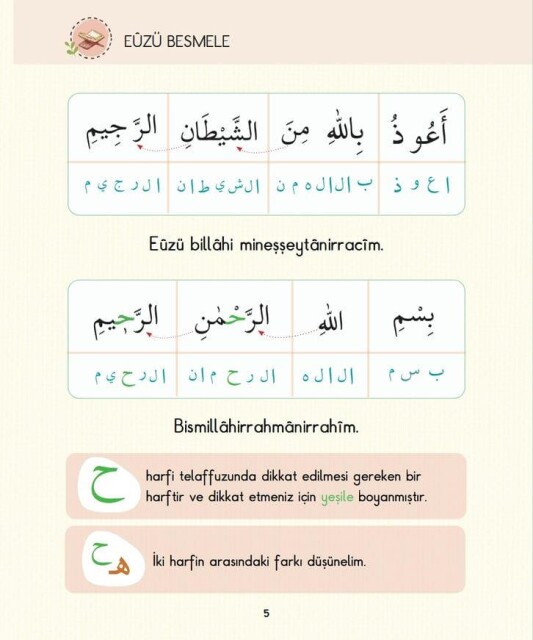 EÛZÜ BESMELE
أَعُوذُ بِاللّٰهِ مِنَ الشَّيْطَانِ الرَّجِيمِ
ا ع و ذ ب ا ل ا ل ه م ن ا ل ش ي ط ا ن ا ل ر ج ي م
Eûzü billâhi mineşşeytânirracîm.
بِسْمِ اللّٰهِ الرَّحْمٰنِ الرَّحِيمِ
ب س م ا ل ا ل ه ا ل ر ح م ا ن ا ل ر ح ي م
Bismillâhirrahmânirrahîm.
ح harfi telaffuzunda dikkat edilmesi gereken bir
harftir ve dikkat etmeniz için yeşile boyanmıştır.
ح هـ İki harfin arasındaki farkı düşünelim.
5